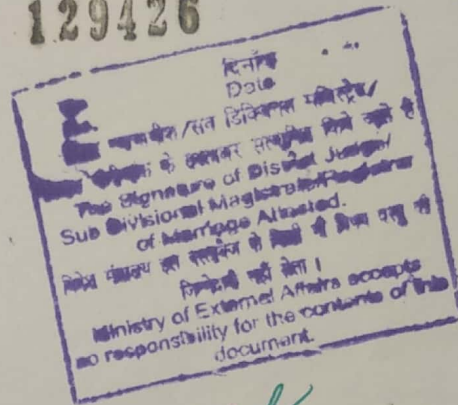 129426
दिनाँक
Date
न्यायाधीश/सब डिविजनल मजिस्ट्रेट/
के हस्ताक्षर सत्यापित किये जाते है
The Signature of District Judge/
Sub Divisional Magistrate/Registrar
of Marriage Attested.
विदेश मंत्रालय इस दस्तावेज के किसी भी विषय वस्तु की
जिम्मेदारी नहीं लेता।
Ministry of External Affairs accepts
no responsibility for the contents of this
document.